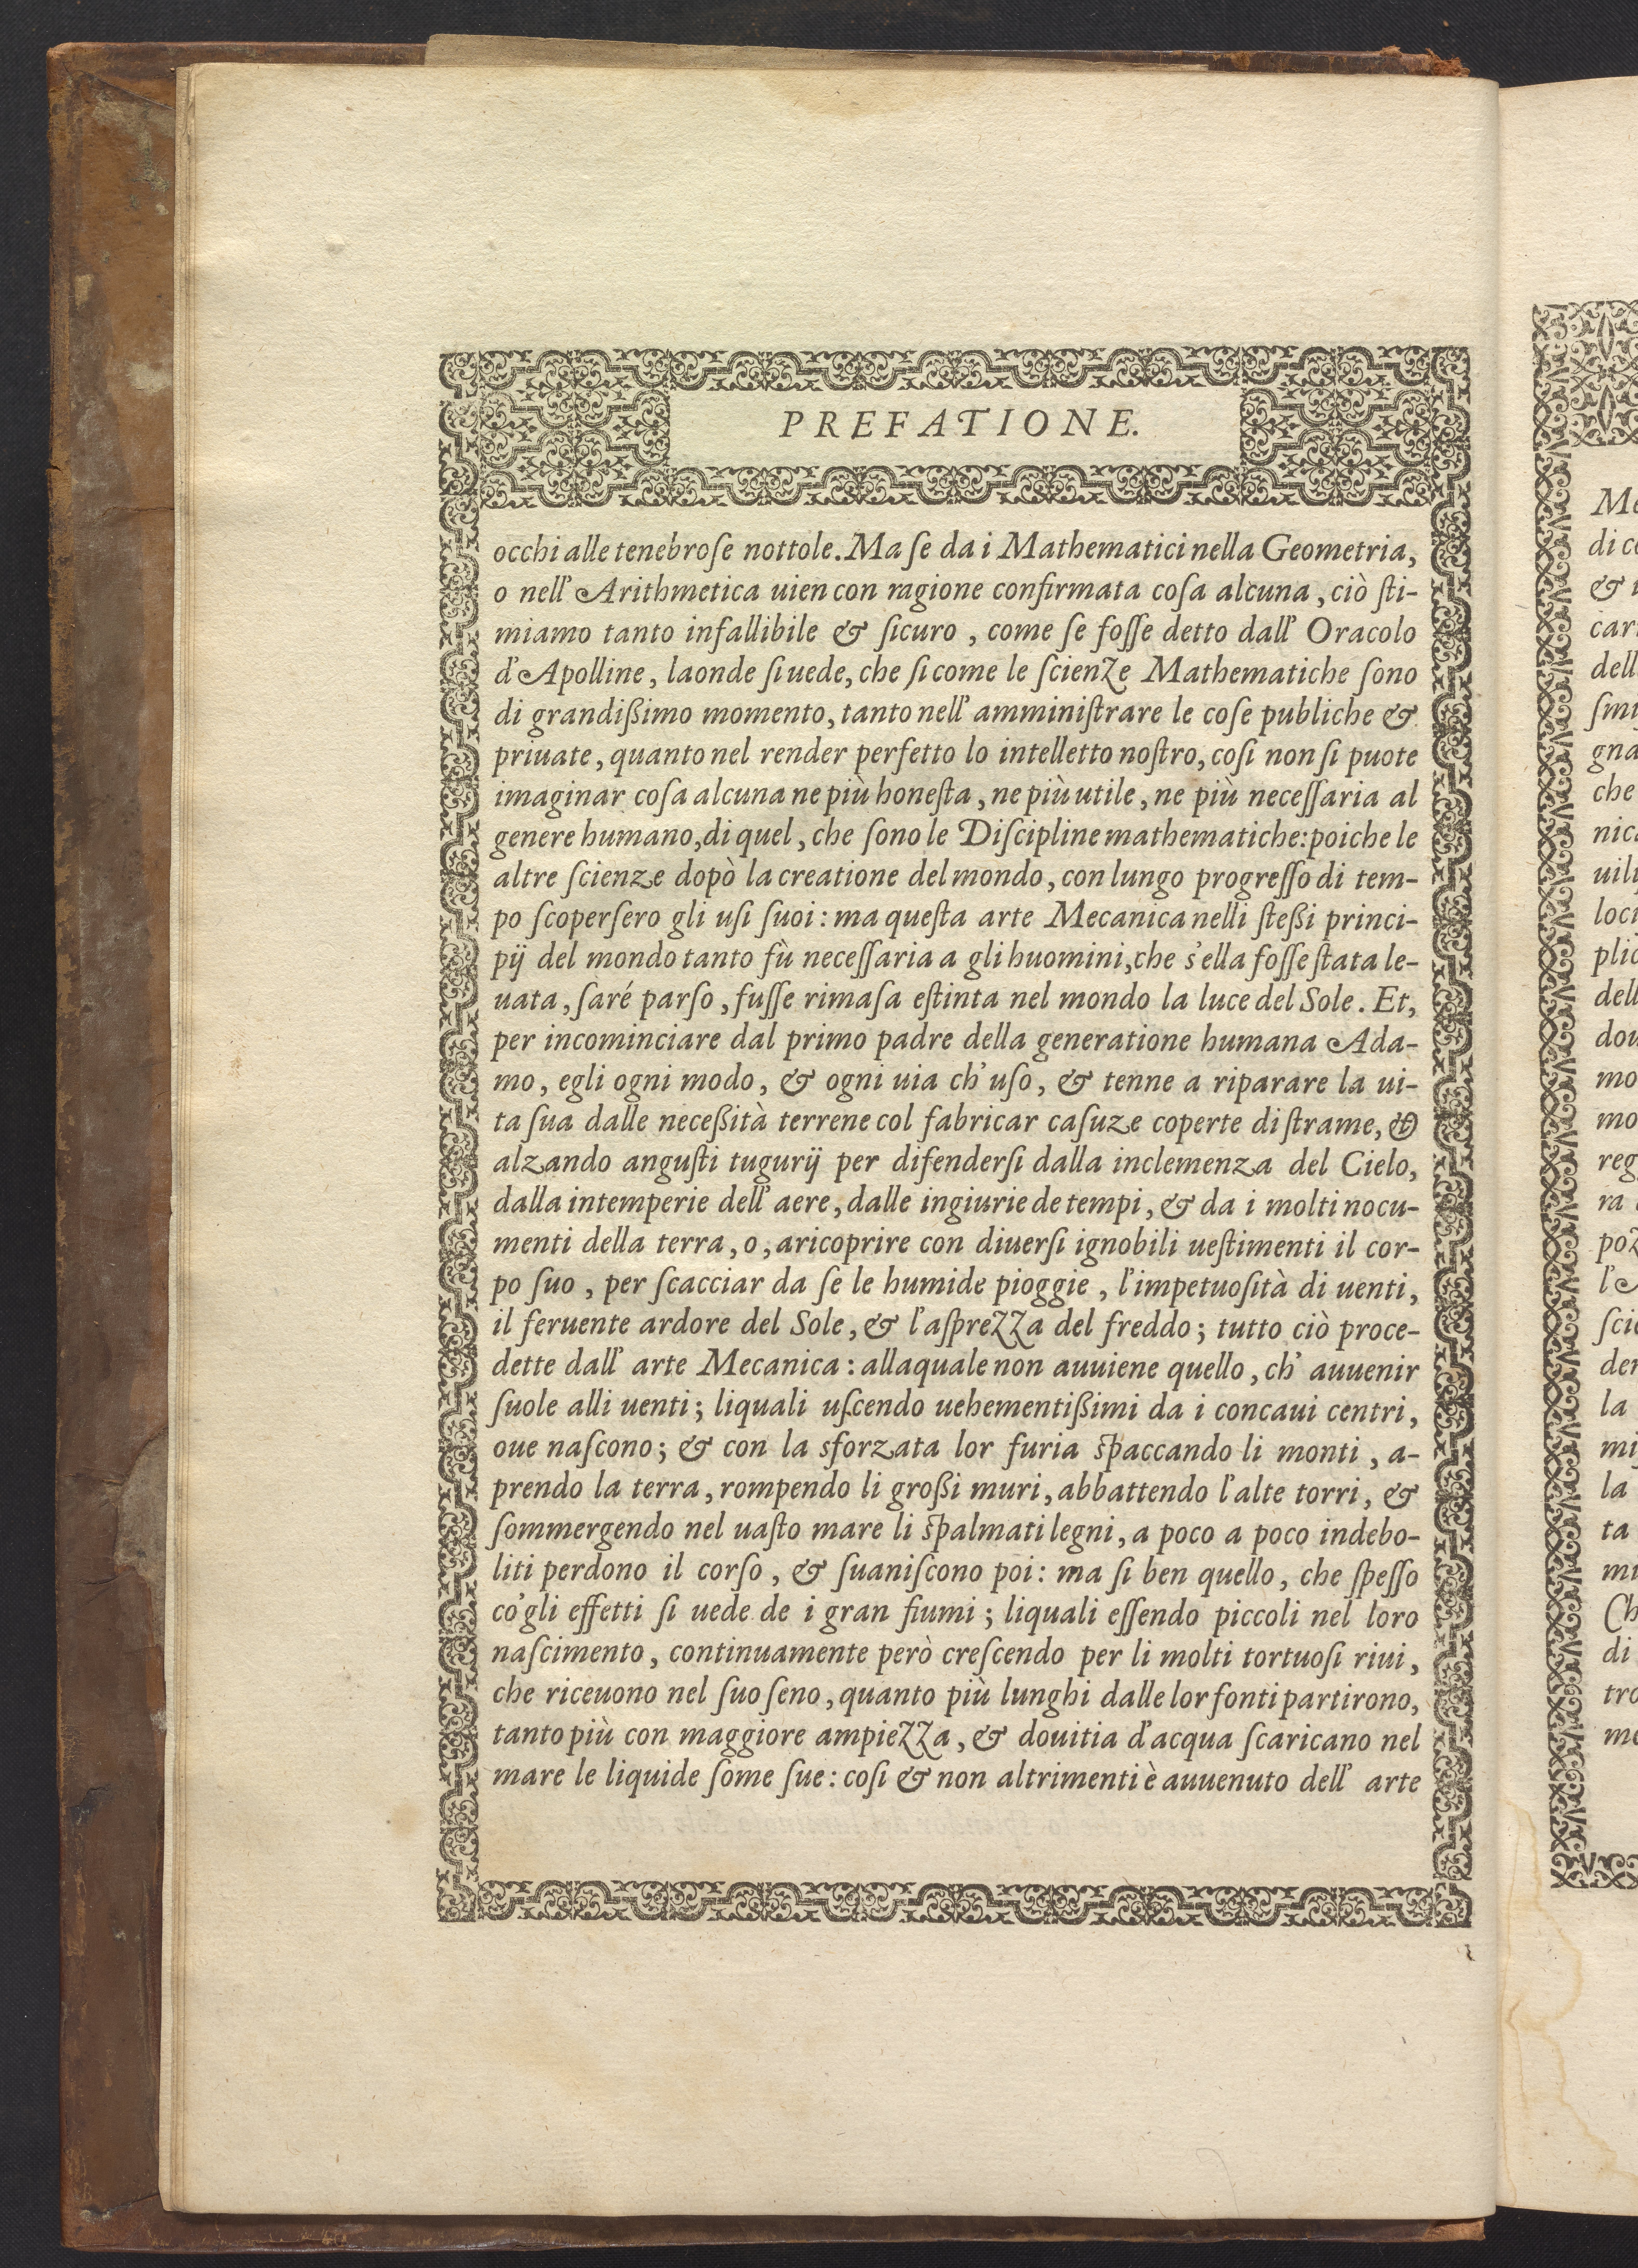 PREFATIONE.
occhi alle tenebroſe nottole. Ma ſe da i Mathematici nella Geometria,
o nell' Arithmetica uien con ragione confirmata coſa alcuna, ciò ſti-
miamo tanto infallibile & ſicuro, come ſe foſſe detto dall' Oracolo
d'Apolline, laonde ſi uede, che ſi come le ſcienze Mathematiche ſono
di grandißimo momento, tanto nell' amminiſtrare le coſe publiche &
priuate, quanto nel render perfetto lo intelletto noſtro, coſi non ſi puote
imaginar coſa alcuna ne più honeſta, ne più utile, ne più neceſſaria al
genere humano, di quel, che ſono le Diſcipline mathematiche: poiche le
altre ſcienze dopò la creatione del mondo, con lungo progreſſo di tem-
po ſcoperſero gli uſi ſuoi: ma queſta arte Mecanica nelli ſteßi princi-
pij del mondo tanto fù neceſſaria a gli huomini, che s'ella foſſe ſtata le-
uata, ſaré parſo, fuſſe rimaſa eſtinta nel mondo la luce del Sole. Et,
per incominciare dal primo padre della generatione humana Ada-
mo, egli ogni modo, & ogni uia ch' uſo, & tenne a riparare la ui-
ta ſua dalle neceßità terrene col fabricar caſuze coperte di ſtrame, &
alzando anguſti tugurij per difenderſi dalla inclemenza del Cielo,
dalla intemperie dell' aere, dalle ingiurie de tempi, & da i molti nocu-
menti della terra, o, a ricoprire con diuerſi ignobili ueſtimenti il cor-
po ſuo, per ſcacciar da ſe le humide pioggie, l'impetuoſità di uenti,
il feruente ardore del Sole, & l'aſprezza del freddo; tutto ciò proce-
dette dall' arte Mecanica: alla quale non auuiene quello, ch' auuenir
ſuole alli uenti; liquali uſcendo uehementißimi da i concaui centri,
oue naſcono; & con la sforzata lor furia ſpaccando li monti, a-
prendo la terra, rompendo li großi muri, abbattendo l'alte torri, &
ſommergendo nel uaſto mare li ſpalmati legni, a poco a poco indebo-
liti perdono il corſo, & ſuaniſcono poi: ma ſi ben quello, che ſpeſſo
co'gli effetti ſi uede de i gran fiumi; liquali eſſendo piccoli nel loro
naſcimento, continuamente però creſcendo per li molti tortuoſi riui,
che riceuono nel ſuo ſeno, quanto più lunghi dalle lor fonti partirono,
tanto più con maggiore ampiezza, & douitia d'acqua ſcaricano nel
mare le liquide ſome ſue: coſi & non altrimenti è auuenuto dell' arte